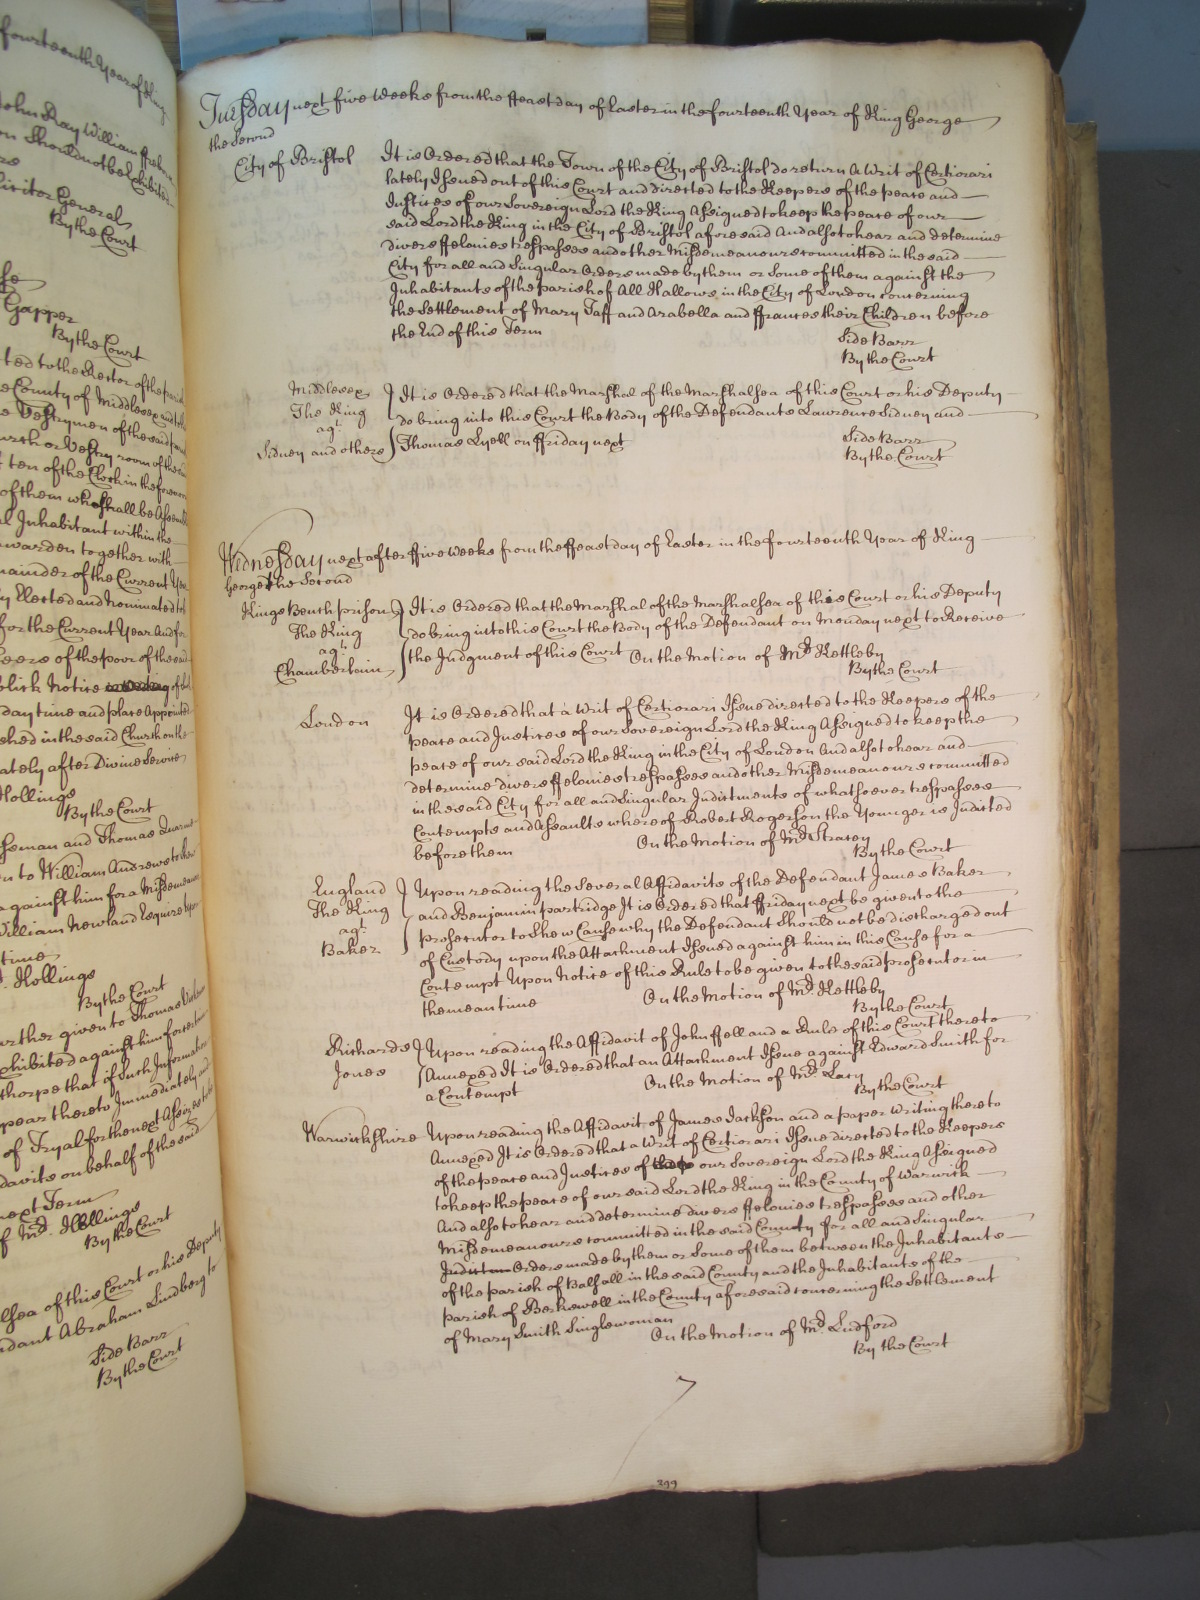 fourteenth Year of King
John Kay William
on Should not be Exhibited
Solicitor General
By the Court
Gapper
By the Court
ted to the Rector of the parish
e County of Middlesex and to the
e Vestrymen of the said parish
urch or Vestry room of the said
t ten of the Clock in the forenoon
of them who shall be Assembled
al Inhabitant within the
warden together with
mainder of the Current Year
y Elected and Nominated to
for the Current Year And for
seers of the poor of the said
blick Notice of the
day time and place Appointed
shed in the said Church on the
ately after Divine Service
Hollings
By the Court
seman and Thomas
en to William Andrews to shew
against him for a Misdemeanor
William Newland Esquire upon
time
Mr. Hollings
By the Court
urther given to Thomas
xhibited against him for certain
thorpe that if such Information
ppear thereto Immediately and
of Tryal for the next Assizes to be
davits on behalf of the said
next Term
of Mr. Hollings
By the Court
alsea of this Court or his Deputy
ndant Abraham Lindberg to
Side Barr
By the Court
Tuesday next five Weeks from the ffeast day of Easter in the fourteenth Year of King George
the Second
City of Bristol It is Ordered that the Town of the City of Bristol do return a Writ of Certiorari
lately Issued out of this Court and directed to the Keepers of the peace and
Justices of our Sovereign Lord the King Assigned to keep the peace of our
said Lord the King in the City of Bristol aforesaid And also to hear and determine
divers ffelonies trespasses and other Misdemeanours committed in the said
City for all and Singular Orders made by them or some of them against the
Inhabitants of the parish of All Hallows in the City of London concerning
the Settlement of Mary Taff and Arabella and ffrances their Children before
the End of this Term
Side Barr
By the Court
Middlesex It is Ordered that the Marshal of the Marshalsea of this Court or his Deputy
The King do bring into this Court the Body of the Defendants Lawrence Sidney and
agt.
Sidney and others Thomas Lyell on ffriday next
Side Barr
By the Court
Wednesday next after ffive weeks from the ffeast day of Easter in the fourteenth Year of King
George the Second
Kings Bench prison It is Ordered that the Marshal of the Marshalsea of this Court or his Deputy
The King do bring into this Court the Body of the Defendant on Monday next to Receive
agt.
Chamberlain the Judgment of this Court On the Motion of Mr. Kettleby
By the Court
London It is Ordered that a Writ of Certiorari Issue directed to the Keepers of the
peace and Justices of our Sovereign Lord the King Assigned to keep the
peace of our said Lord the King in the City of London And also to hear and
determine divers ffelonies trespasses and other Misdemeanours committed
in the said City for all and Singular Indictments of whatsoever trespasses
Contempts and Assaults whereof Robert Rogerson the Younger is Indicted
before them On the Motion of Mr. Stracey
By the Court
England Upon reading the Several Affidavits of the Defendant James Baker
The King and Benjamin Partridge It is Ordered that ffriday next be given to the
agt. prosecutor to Shew Cause why the Defendant Should not be discharged out
Baker of Custody upon the Attachment Issued against him in this Cause for a
Contempt Upon Notice of this Rule to be given to the said prosecutor in
the mean time On the Motion of Mr. Kettleby
By the Court
Richards Upon reading the Affidavit of John ffell and a Rule of this Court thereto
Jones Annexed It is Ordered that an Attachment Issue against Edward Smith for
a Contempt On the Motion of Mr. Lacy
By the Court
Warwickshire Upon reading the Affidavit of James Jackson and a paper Writing thereto
Annexed It is Ordered that a Writ of Certiorari Issue directed to the Keepers
of the peace and Justices of our Sovereign Lord the King Assigned
to keep the peace of our said Lord the King in the County of Warwick
And also to hear and determine divers ffelonies trespasses and other
Misdemeanours committed in the said County for all and Singular
Orders made by them or Some of them between the Inhabitants
of the parish of Balsall in the said County and the Inhabitants of the
parish of Berkswell in the County aforesaid concerning the Settlement
of Mary Smith Singlewoman
On the Motion of Mr. Ludford
By the Court
299